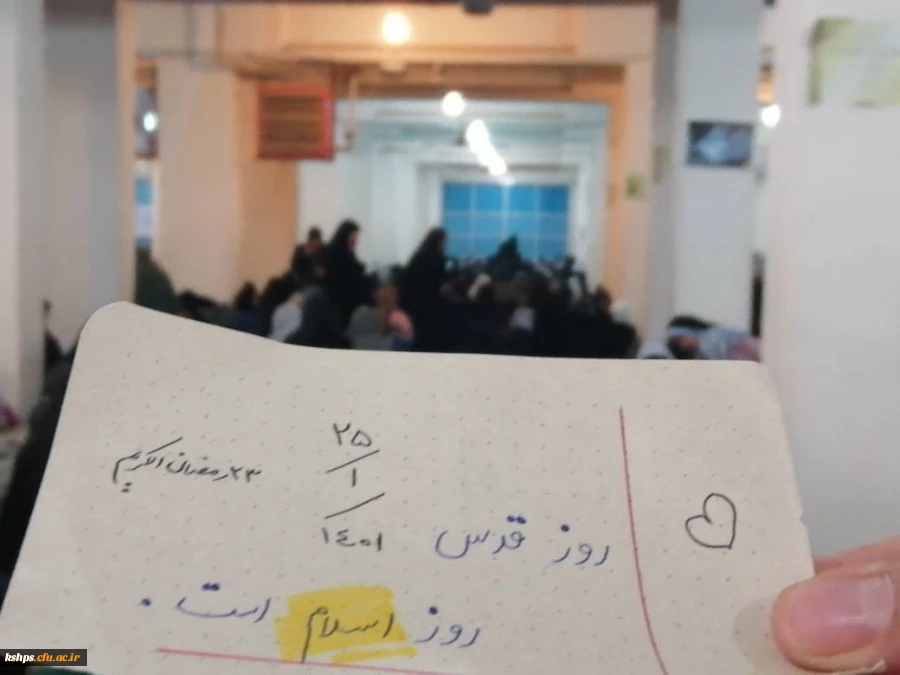 ۲۵
/
۱
/
۱۴۰۱
۲۳ رمضان الکریم
روز قدس
روز اسلام است.
kshps.cfu.ac.ir